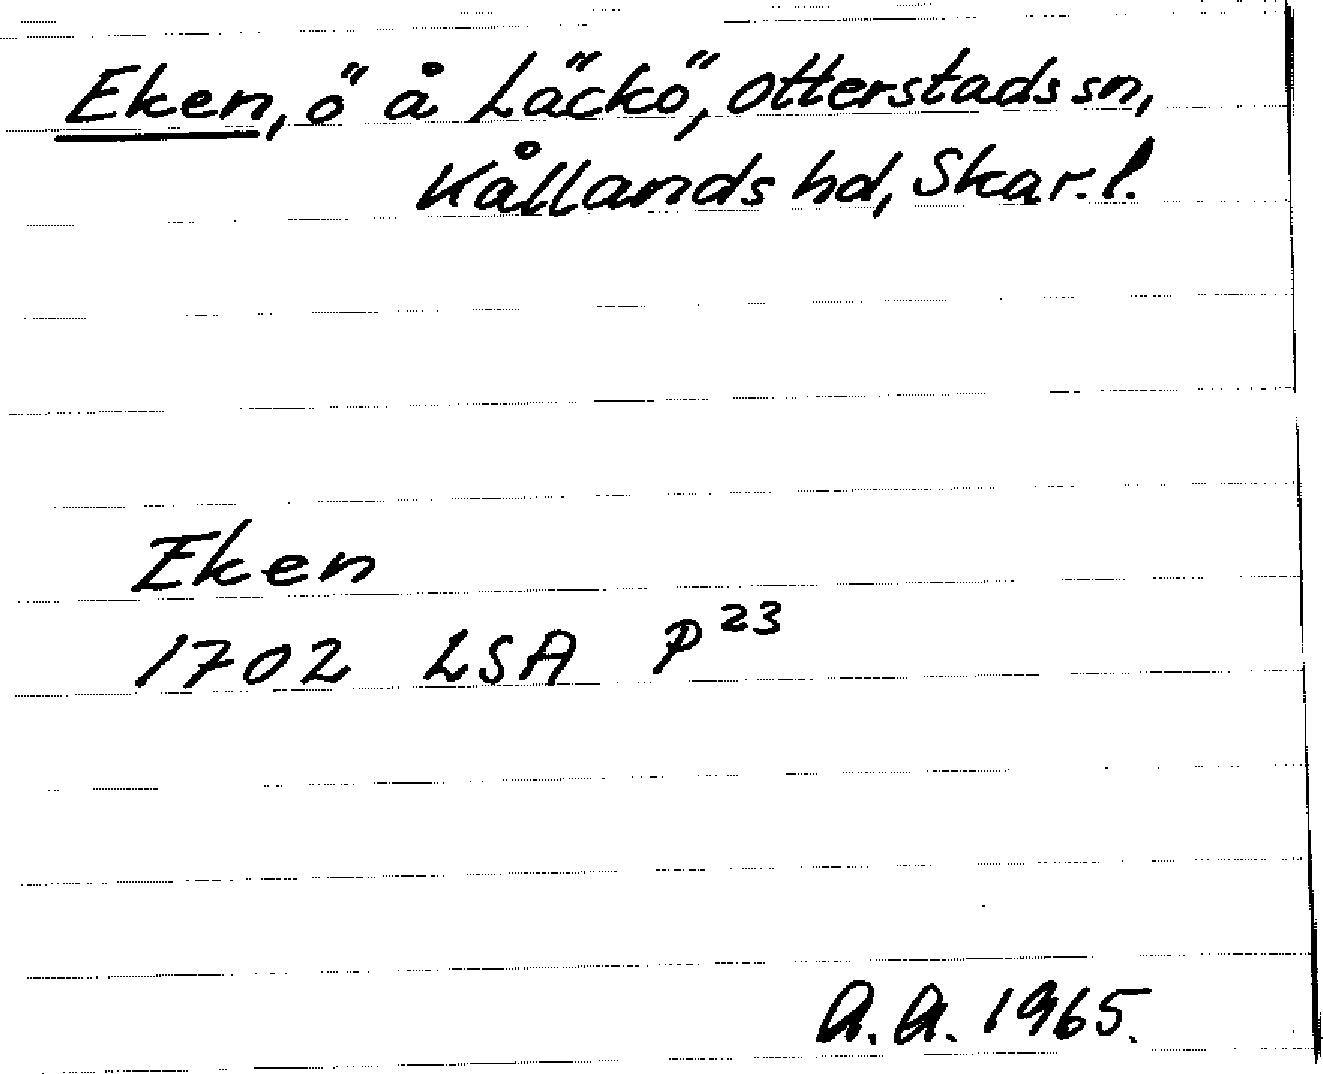 Eken, ö å Läckö, Otterstads sn,
Kållands hd, Skar.l.
Eken
1702 LSA P 23
A.A. 1965.